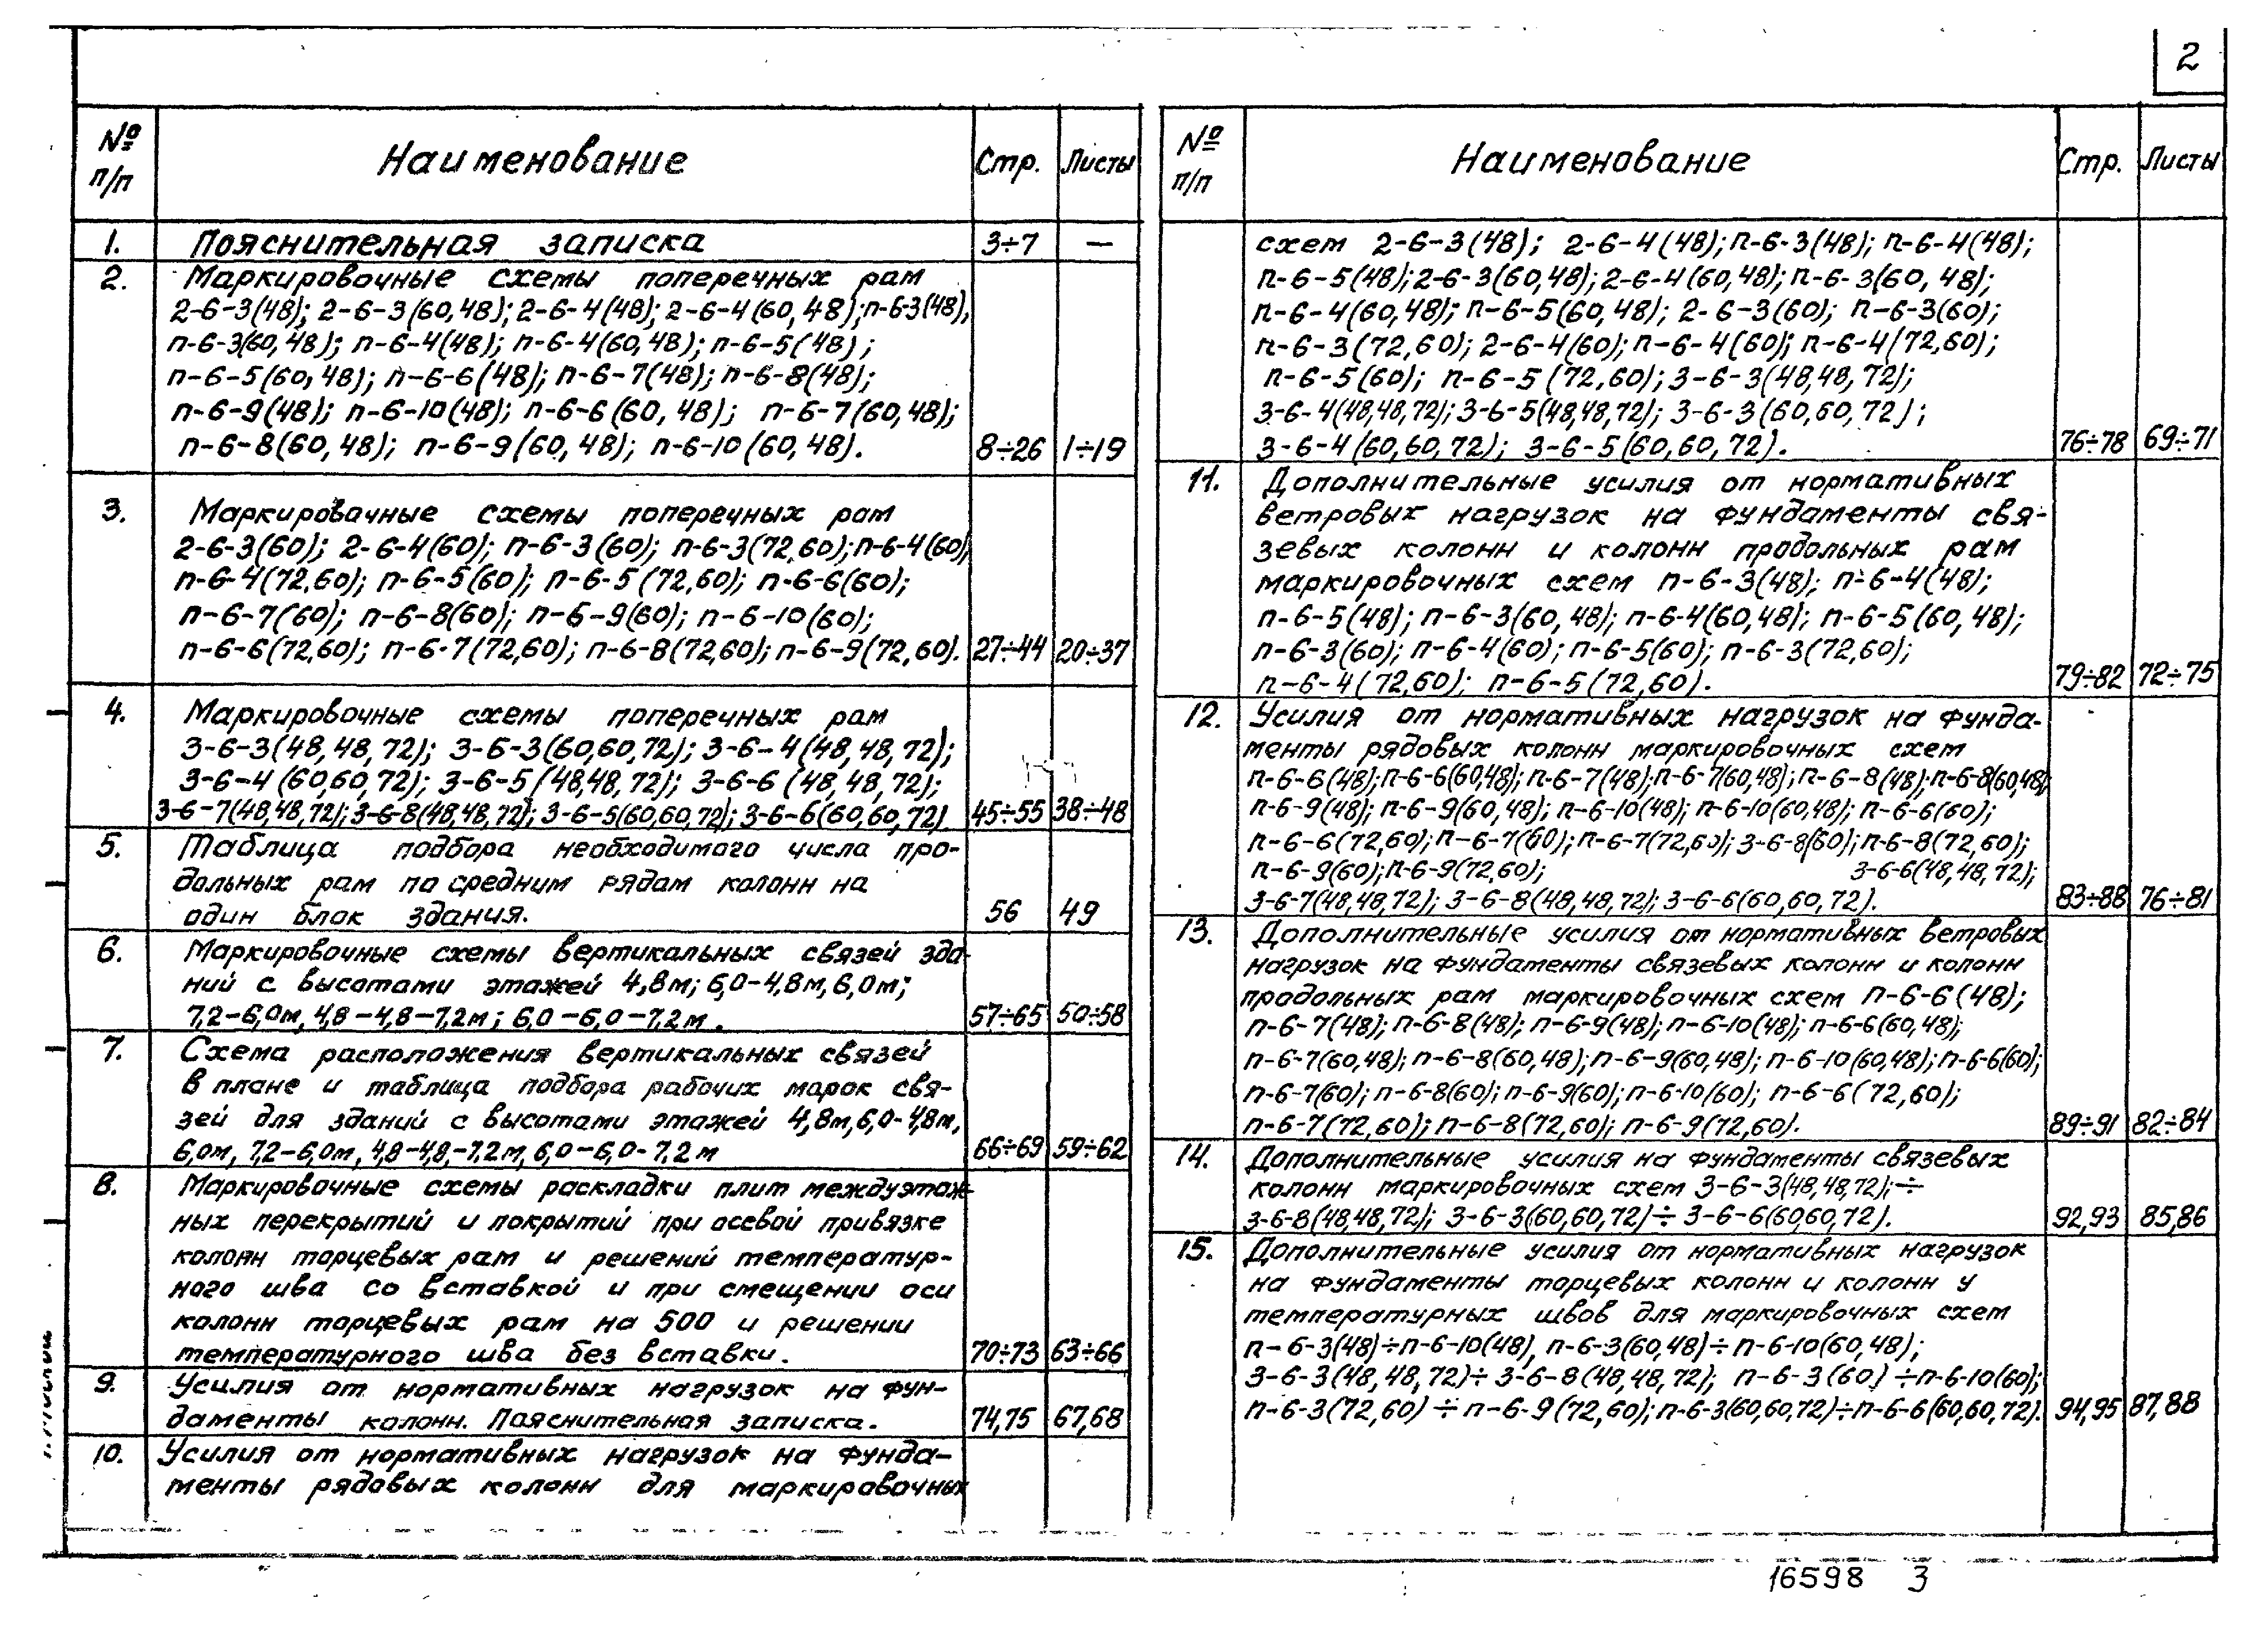 2
№ п/п Наименование Стр. Листы
1. Пояснительная записка 3÷7 —
2. Маркировочные схемы поперечных рам
2-6-3(48); 2-6-3(60,48); 2-6-4(48); 2-6-4(60,48); п-6-3(48);
п-6-3(60,48); п-6-4(48); п-6-4(60,48); п-6-5(48);
п-6-5(60,48); п-6-6(48); п-6-7(48); п-6-8(48);
п-6-9(48); п-6-10(48); п-6-6(60,48); п-6-7(60,48);
п-6-8(60,48); п-6-9(60,48); п-6-10(60,48). 8÷26 1÷19
3. Маркировочные схемы поперечных рам
2-6-3(60); 2-6-4(60); п-6-3(60); п-6-3(72,60); п-6-4(60);
п-6-4(72,60); п-6-5(60); п-6-5(72,60); п-6-6(60);
п-6-7(60); п-6-8(60); п-6-9(60); п-6-10(60);
п-6-6(72,60); п-6-7(72,60); п-6-8(72,60); п-6-9(72,60). 27÷44 20÷37
4. Маркировочные схемы поперечных рам
3-6-3(48,48,72); 3-6-3(60,60,72); 3-6-4(48,48,72);
3-6-4(60,60,72); 3-6-5(48,48,72); 3-6-6(48,48,72);
3-6-7(48,48,72); 3-6-8(48,48,72); 3-6-5(60,60,72); 3-6-6(60,60,72) 45÷55 38÷48
5. Таблица подбора необходимого числа про-
дольных рам по средним рядам колонн на
один блок здания. 56 49
6. Маркировочные схемы вертикальных связей зда-
ний с высотами этажей 4,8м; 6,0-4,8м, 6,0м;
7,2-6,0м, 4,8-4,8-7,2м; 6,0-6,0-7,2м. 57÷65 50÷58
7. Схема расположения вертикальных связей
в плане и таблица подбора рабочих марок свя-
зей для зданий с высотами этажей 4,8м, 6,0-4,8м,
6,0м, 7,2-6,0м, 4,8-4,8-7,2м, 6,0-6,0-7,2м 66÷69 59÷62
8. Маркировочные схемы раскладки плит междуэтаж-
ных перекрытий и покрытий при осевой привязке
колонн торцевых рам и решений температур-
ного шва со вставкой и при смещении оси
колонн торцевых рам на 500 и решении
температурного шва без вставки. 70÷73 63÷66
9. Усилия от нормативных нагрузок на фун-
даменты колонн. Пояснительная записка. 74,75 67,68
10. Усилия от нормативных нагрузок на фунда-
менты рядовых колонн для маркировочных
№ п/п Наименование Стр. Листы
схем 2-6-3(48); 2-6-4(48); п-6-3(48); п-6-4(48);
п-6-5(48); 2-6-3(60,48); 2-6-4(60,48); п-6-3(60,48);
п-6-4(60,48); п-6-5(60,48); 2-6-3(60); п-6-3(60);
п-6-3(72,60); 2-6-4(60); п-6-4(60); п-6-4(72,60);
п-6-5(60); п-6-5(72,60); 3-6-3(48,48,72);
3-6-4(48,48,72); 3-6-5(48,48,72); 3-6-3(60,60,72);
3-6-4(60,60,72); 3-6-5(60,60,72). 76÷78 69÷71
11. Дополнительные усилия от нормативных
ветровых нагрузок на фундаменты свя-
зевых колонн и колонн продольных рам
маркировочных схем п-6-3(48); п-6-4(48);
п-6-5(48); п-6-3(60,48); п-6-4(60,48); п-6-5(60,48);
п-6-3(60); п-6-4(60); п-6-5(60); п-6-3(72,60);
п-6-4(72,60); п-6-5(72,60). 79÷82 72÷75
12. Усилия от нормативных нагрузок на фунда-
менты рядовых колонн маркировочных схем
п-6-6(48); п-6-6(60,48); п-6-7(48); п-6-7(60,48); п-6-8(48); п-6-8(60,48);
п-6-9(48); п-6-9(60,48); п-6-10(48); п-6-10(60,48); п-6-6(60);
п-6-6(72,60); п-6-7(60); п-6-7(72,60); 3-6-8(60); п-6-8(72,60);
п-6-9(60); п-6-9(72,60); 3-6-6(48,48,72);
3-6-7(48,48,72); 3-6-8(48,48,72); 3-6-6(60,60,72). 83÷88 76÷81
13. Дополнительные усилия от нормативных ветровых
нагрузок на фундаменты связевых колонн и колонн
продольных рам маркировочных схем п-6-6(48);
п-6-7(48); п-6-8(48); п-6-9(48); п-6-10(48); п-6-6(60,48);
п-6-7(60,48); п-6-8(60,48); п-6-9(60,48); п-6-10(60,48); п-6-6(60);
п-6-7(60); п-6-8(60); п-6-9(60); п-6-10(60); п-6-6(72,60);
п-6-7(72,60); п-6-8(72,60); п-6-9(72,60). 89÷91 82÷84
14. Дополнительные усилия на фундаменты связевых
колонн маркировочных схем 3-6-3(48,48,72);÷
3-6-8(48,48,72); 3-6-3(60,60,72)÷3-6-6(60,60,72). 92,93 85,86
15. Дополнительные усилия от нормативных нагрузок
на фундаменты торцевых колонн и колонн у
температурных швов для маркировочных схем
п-6-3(48)÷п-6-10(48), п-6-3(60,48)÷п-6-10(60,48);
3-6-3(48,48,72)÷3-6-8(48,48,72); п-6-3(60)÷п-6-10(60);
п-6-3(72,60)÷п-6-9(72,60); п-6-3(60,60,72)÷п-6-6(60,60,72). 94,95 87,88
16598 3